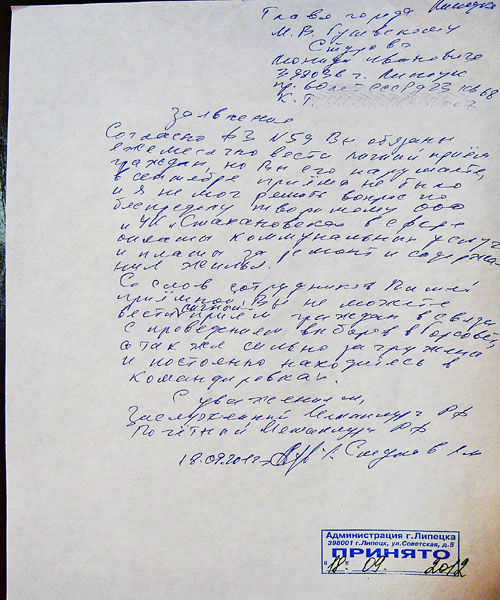 Главе города Липецка
М.В. Гулевскому
Стурова
Леонида Ивановича
398036 г. Липецк
пр. 60 лет СССР д 23 кв 68
К. Т.
Заявление
Согласно ФЗ №59 Вы обязаны
ежемесячно вести личный приём
граждан, но Вы его нарушаете,
в сентябре приёма не было
и я не мог решить вопрос по
беспределу творимому ООО
и УК "Стахановская" в сфере
оплаты коммунальных услуг
и платы за ремонт и содержа-
ния жилья.
Со слов сотрудников Вашей
приёмной, Вы не можете
вести личной приём граждан в связи
с проведением выборов в Горсовет,
а так же сильно загружены
и постоянно находитесь в
командировках.
С уважением,
Заслуженный Металлург РФ
Почётной Металлург РФ
18.09.2012 Стуров
Администрация г.Липецка
398001 г.Липецк, ул.Советская, д.5
ПРИНЯТО
"18" 09 2012